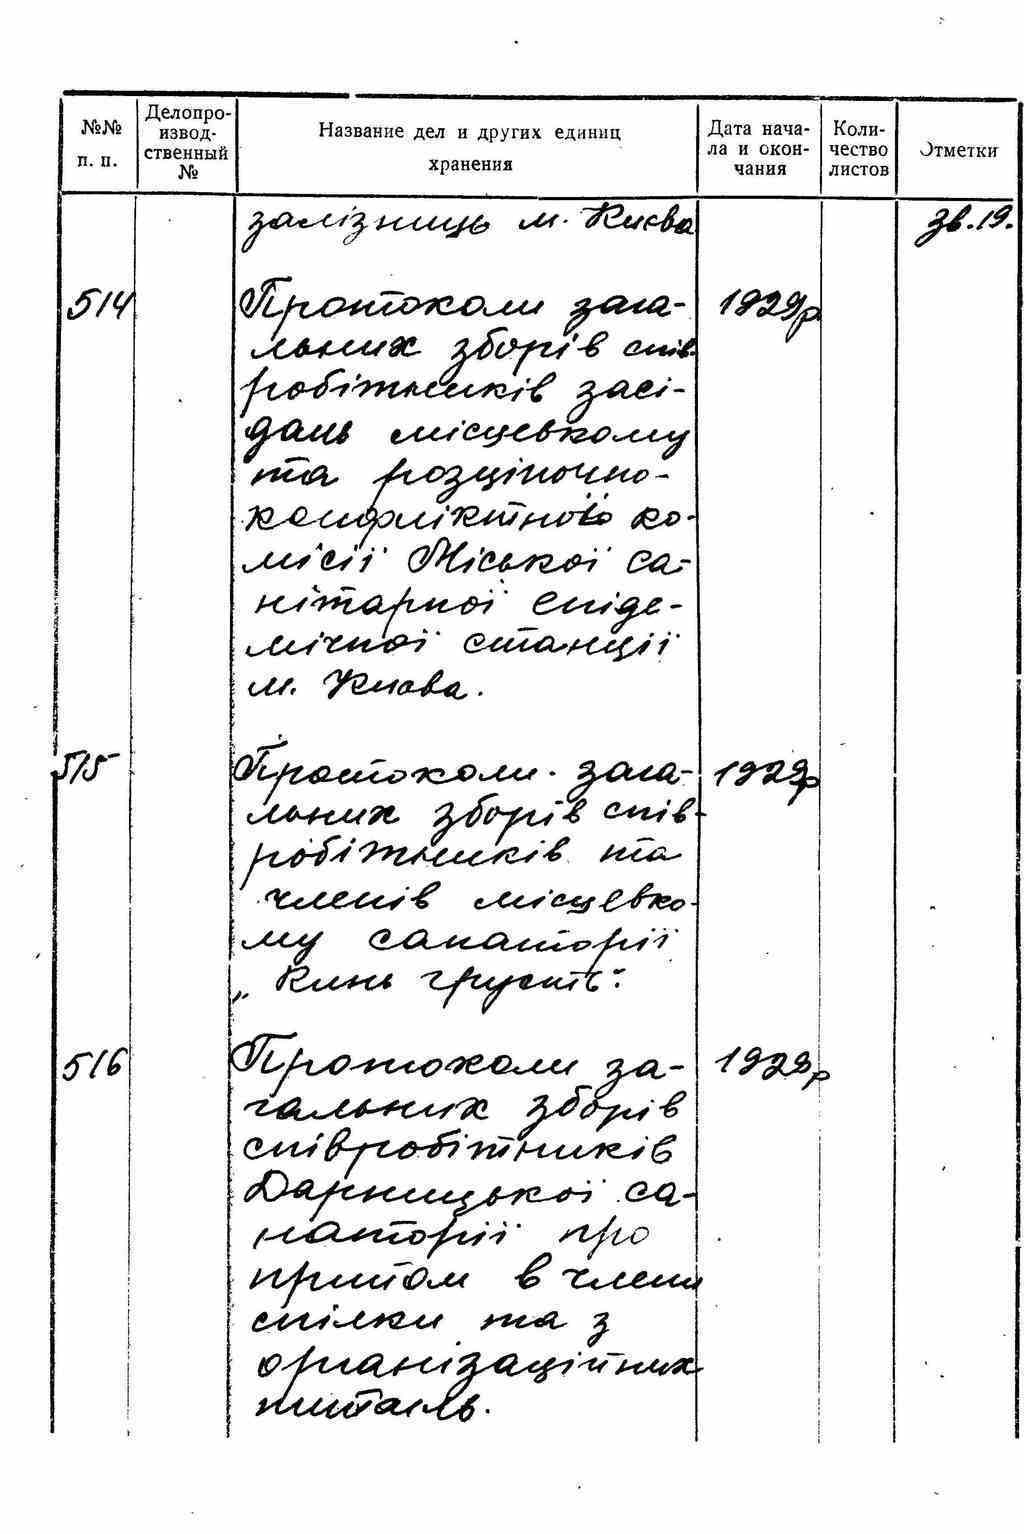 №№ п. п.
Делопро-
извод-
ственный
№
Название дел и других единиц
хранения
Дата нача-
ла и окон-
чания
Коли-
чество
листов
Отметки
залізниць м. Києва
зв. 19.
514
Протоколи зага-
1929р
льних зборів спів-
робітників засі-
дань місцевкому
та розціночно-
конфліктної ко-
місії Міської са-
нітарної епіде-
мічної станції
м. Києва.
515
Протоколи зага-
1929р
льних зборів спів-
робітників та
членів місцевко-
му санаторії
„Кинь грусть".
516
Протоколи за-
1929р
гальних зборів
співробітників
Дарницької са-
наторії про
прийом в члени
спілки та з
організаційних
питань.